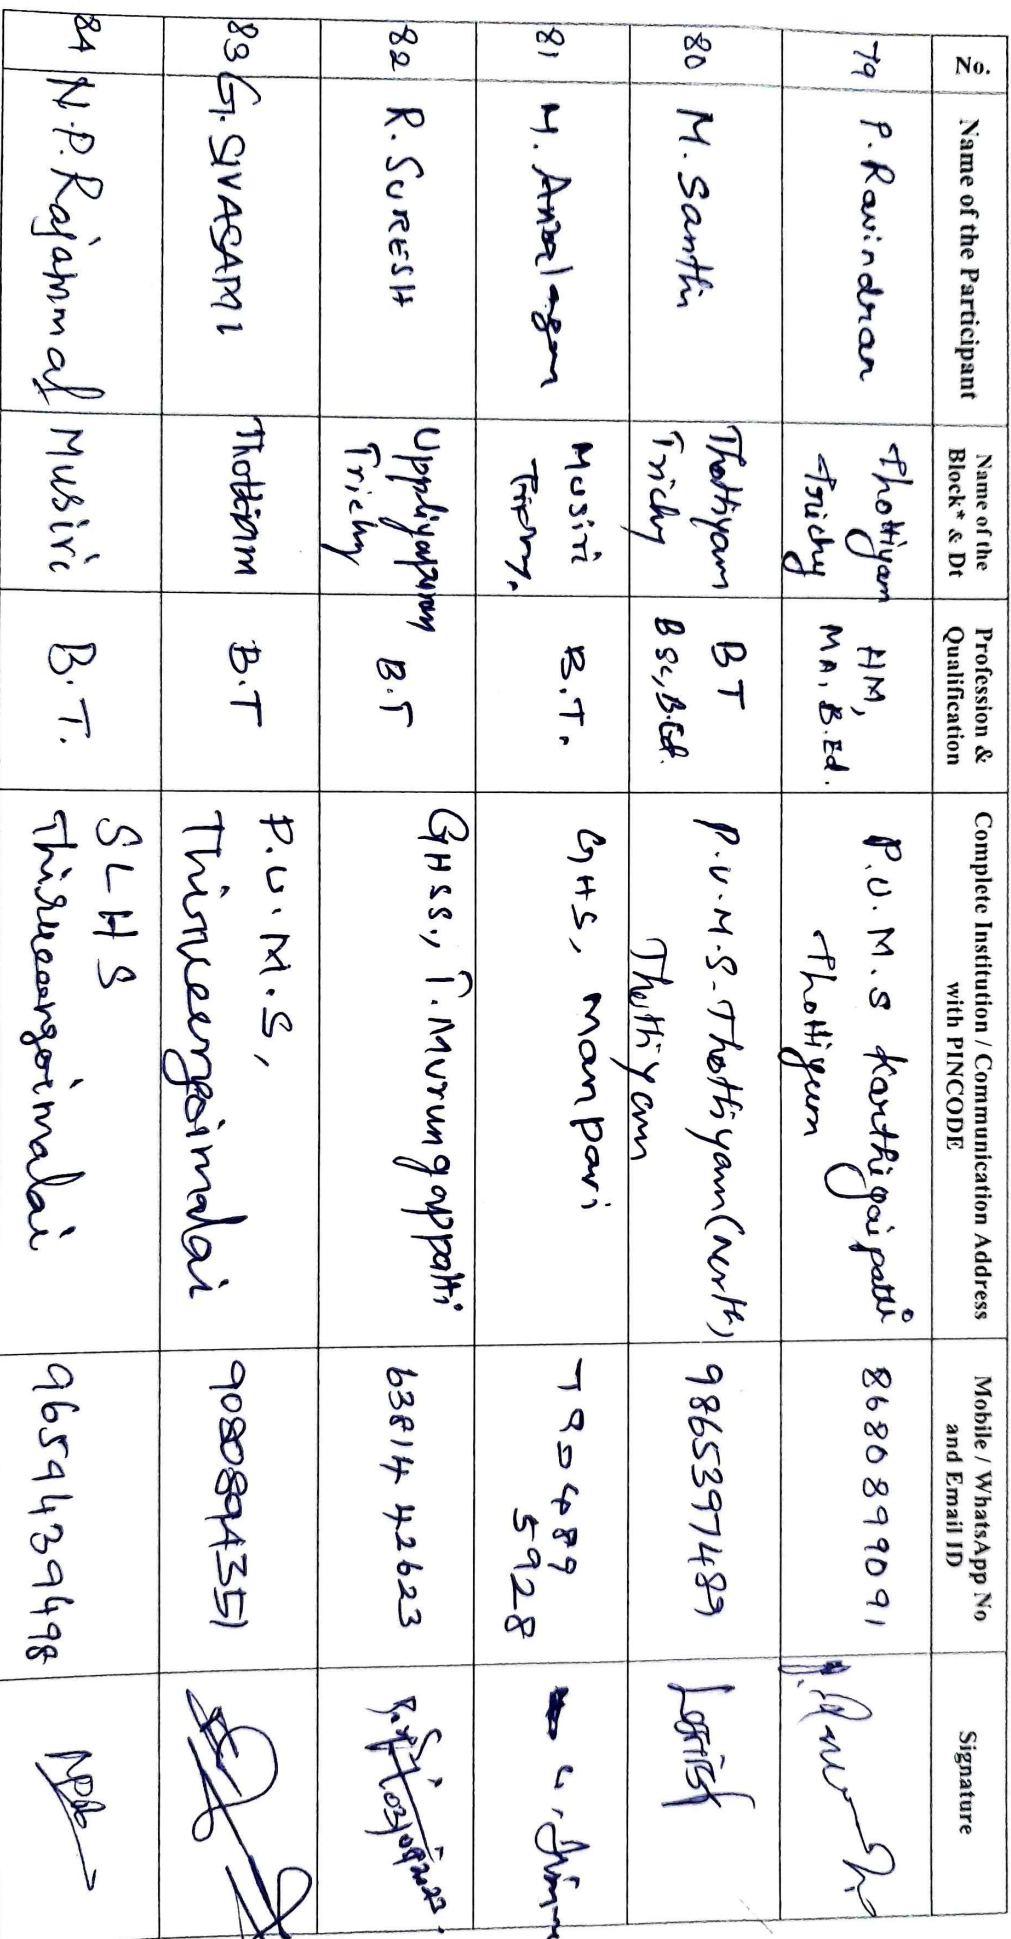 No.
Name of the Participant
Name of the
Block* & Dt
Profession &
Qualification
Complete Institution / Communication Address
with PINCODE
Mobile / WhatsApp No
and Email ID
Signature
79
P. Ravindran
Thottiyam
Trichy
HM,
MA, B.Ed.
P.U.M.S Karthigaipatti
Thottiyam
8680899091
80
M. Santhi
Thottiyam
Trichy
BT
BSc, B.Ed.
P.U.M.S-Thottiyam (North)
Thottiyam
9865397489
81
M. Anbalagan
Musiri
Trichy.
B.T.
GHS, Manparai
790489
5928
82
R. SURESH
Uppliyapuram
Trichy
B.T
GHSS., T. Murungappatti
6381442623
83
G. SIVASAMI
Thottiam
B.T
P.U.M.S,
Thirueengoimalai
9080894351
84
N.P. Rajammal
Musiri
B.T.
SLHS
Thirueengoimalai
9659439498